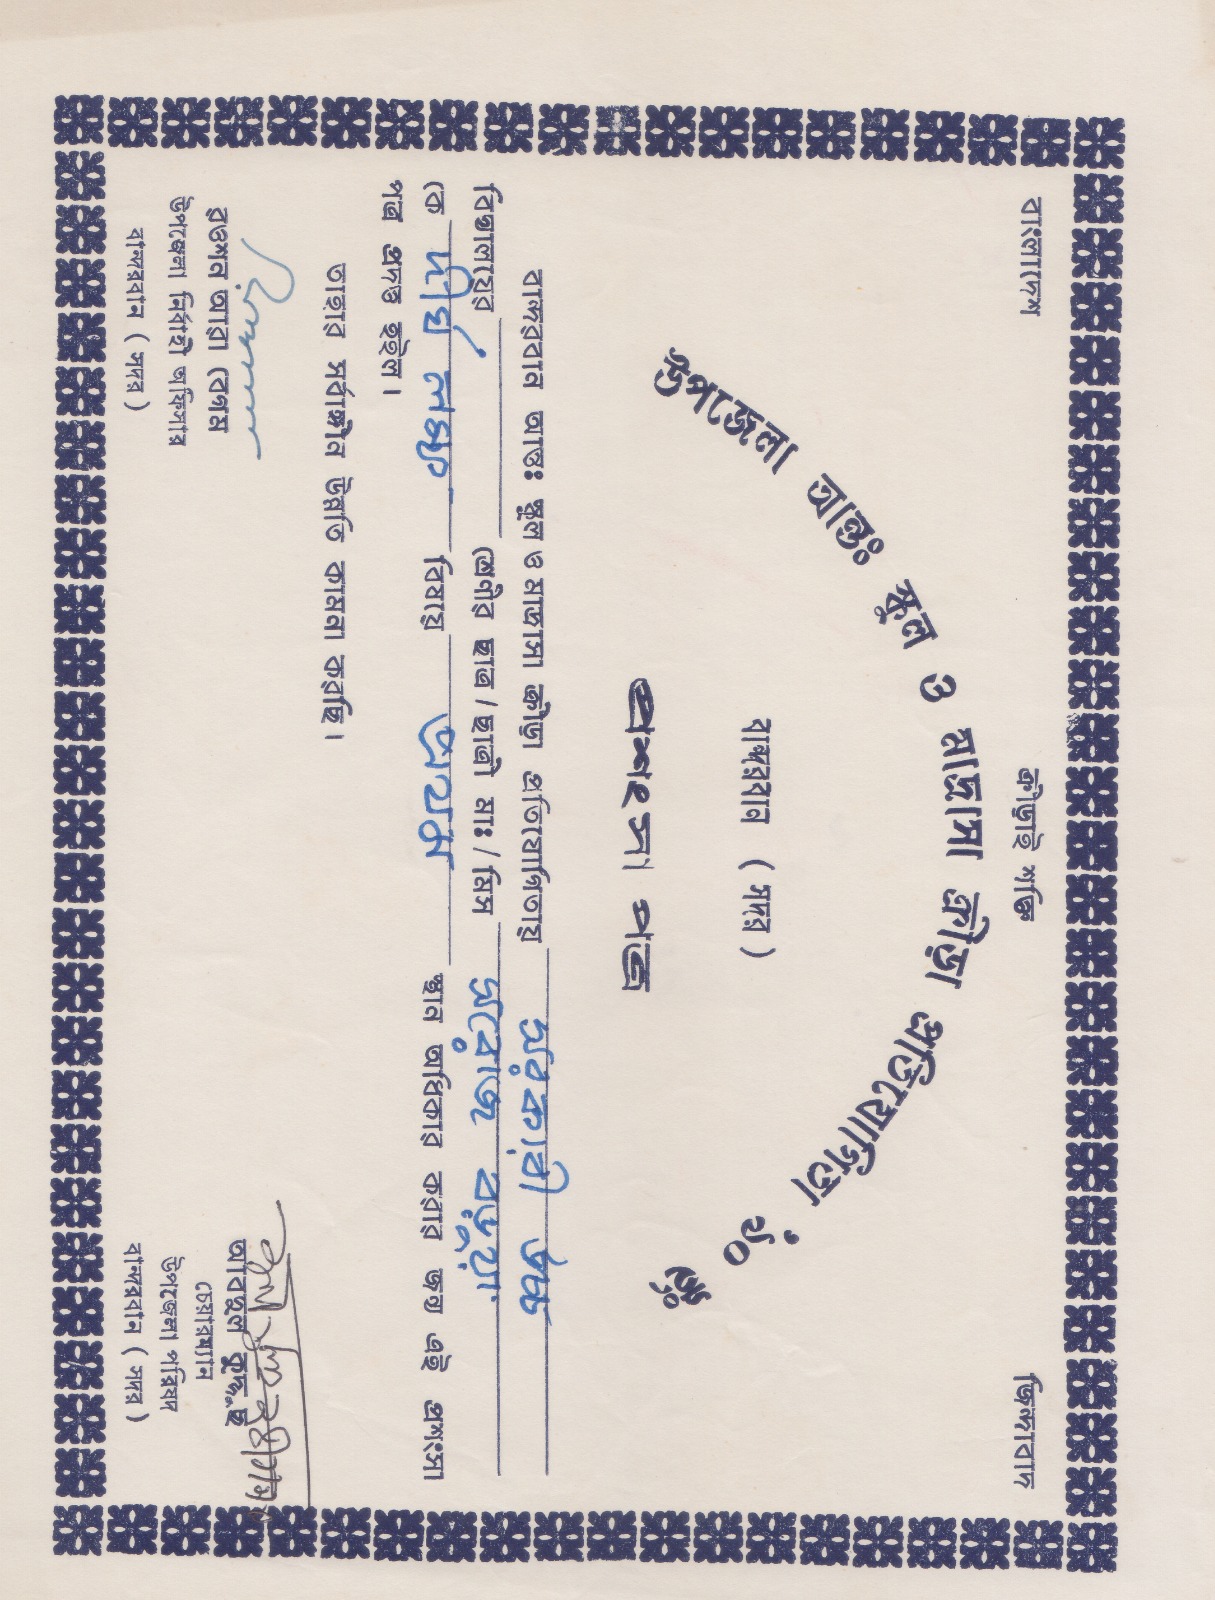 বাংলাদেশ ক্রীড়াই শক্তি জিন্দাবাদ
উপজেলা আন্তঃ স্কুল ও মাদ্রাসা ক্রীড়া প্রতিযোগিতা '৯০ ইং
বান্দরবান ( সদর )
প্রশংসা পত্র
বান্দরবান আন্তঃ স্কুল ও মাদ্রাসা ক্রীড়া প্রতিযোগিতায় সরকারী উচ্চ
বিদ্যালয়ের শ্রেণীর ছাত্র / ছাত্রী মাঃ / মিস সরোজ বড়ুয়া
কে দীর্ঘ লম্ফ বিষয়ে প্রথম স্থান অধিকার করার জন্য এই প্রশংসা
পত্র প্রদত্ত হইল।
তাহার সর্বাঙ্গীন উন্নতি কামনা করছি।
রওশন আরা বেগম
উপজেলা নির্বাহী অফিসার
বান্দরবান ( সদর )
আবদুল কুদ্দুছ
চেয়ারম্যান
উপজেলা পরিষদ
বান্দরবান ( সদর )